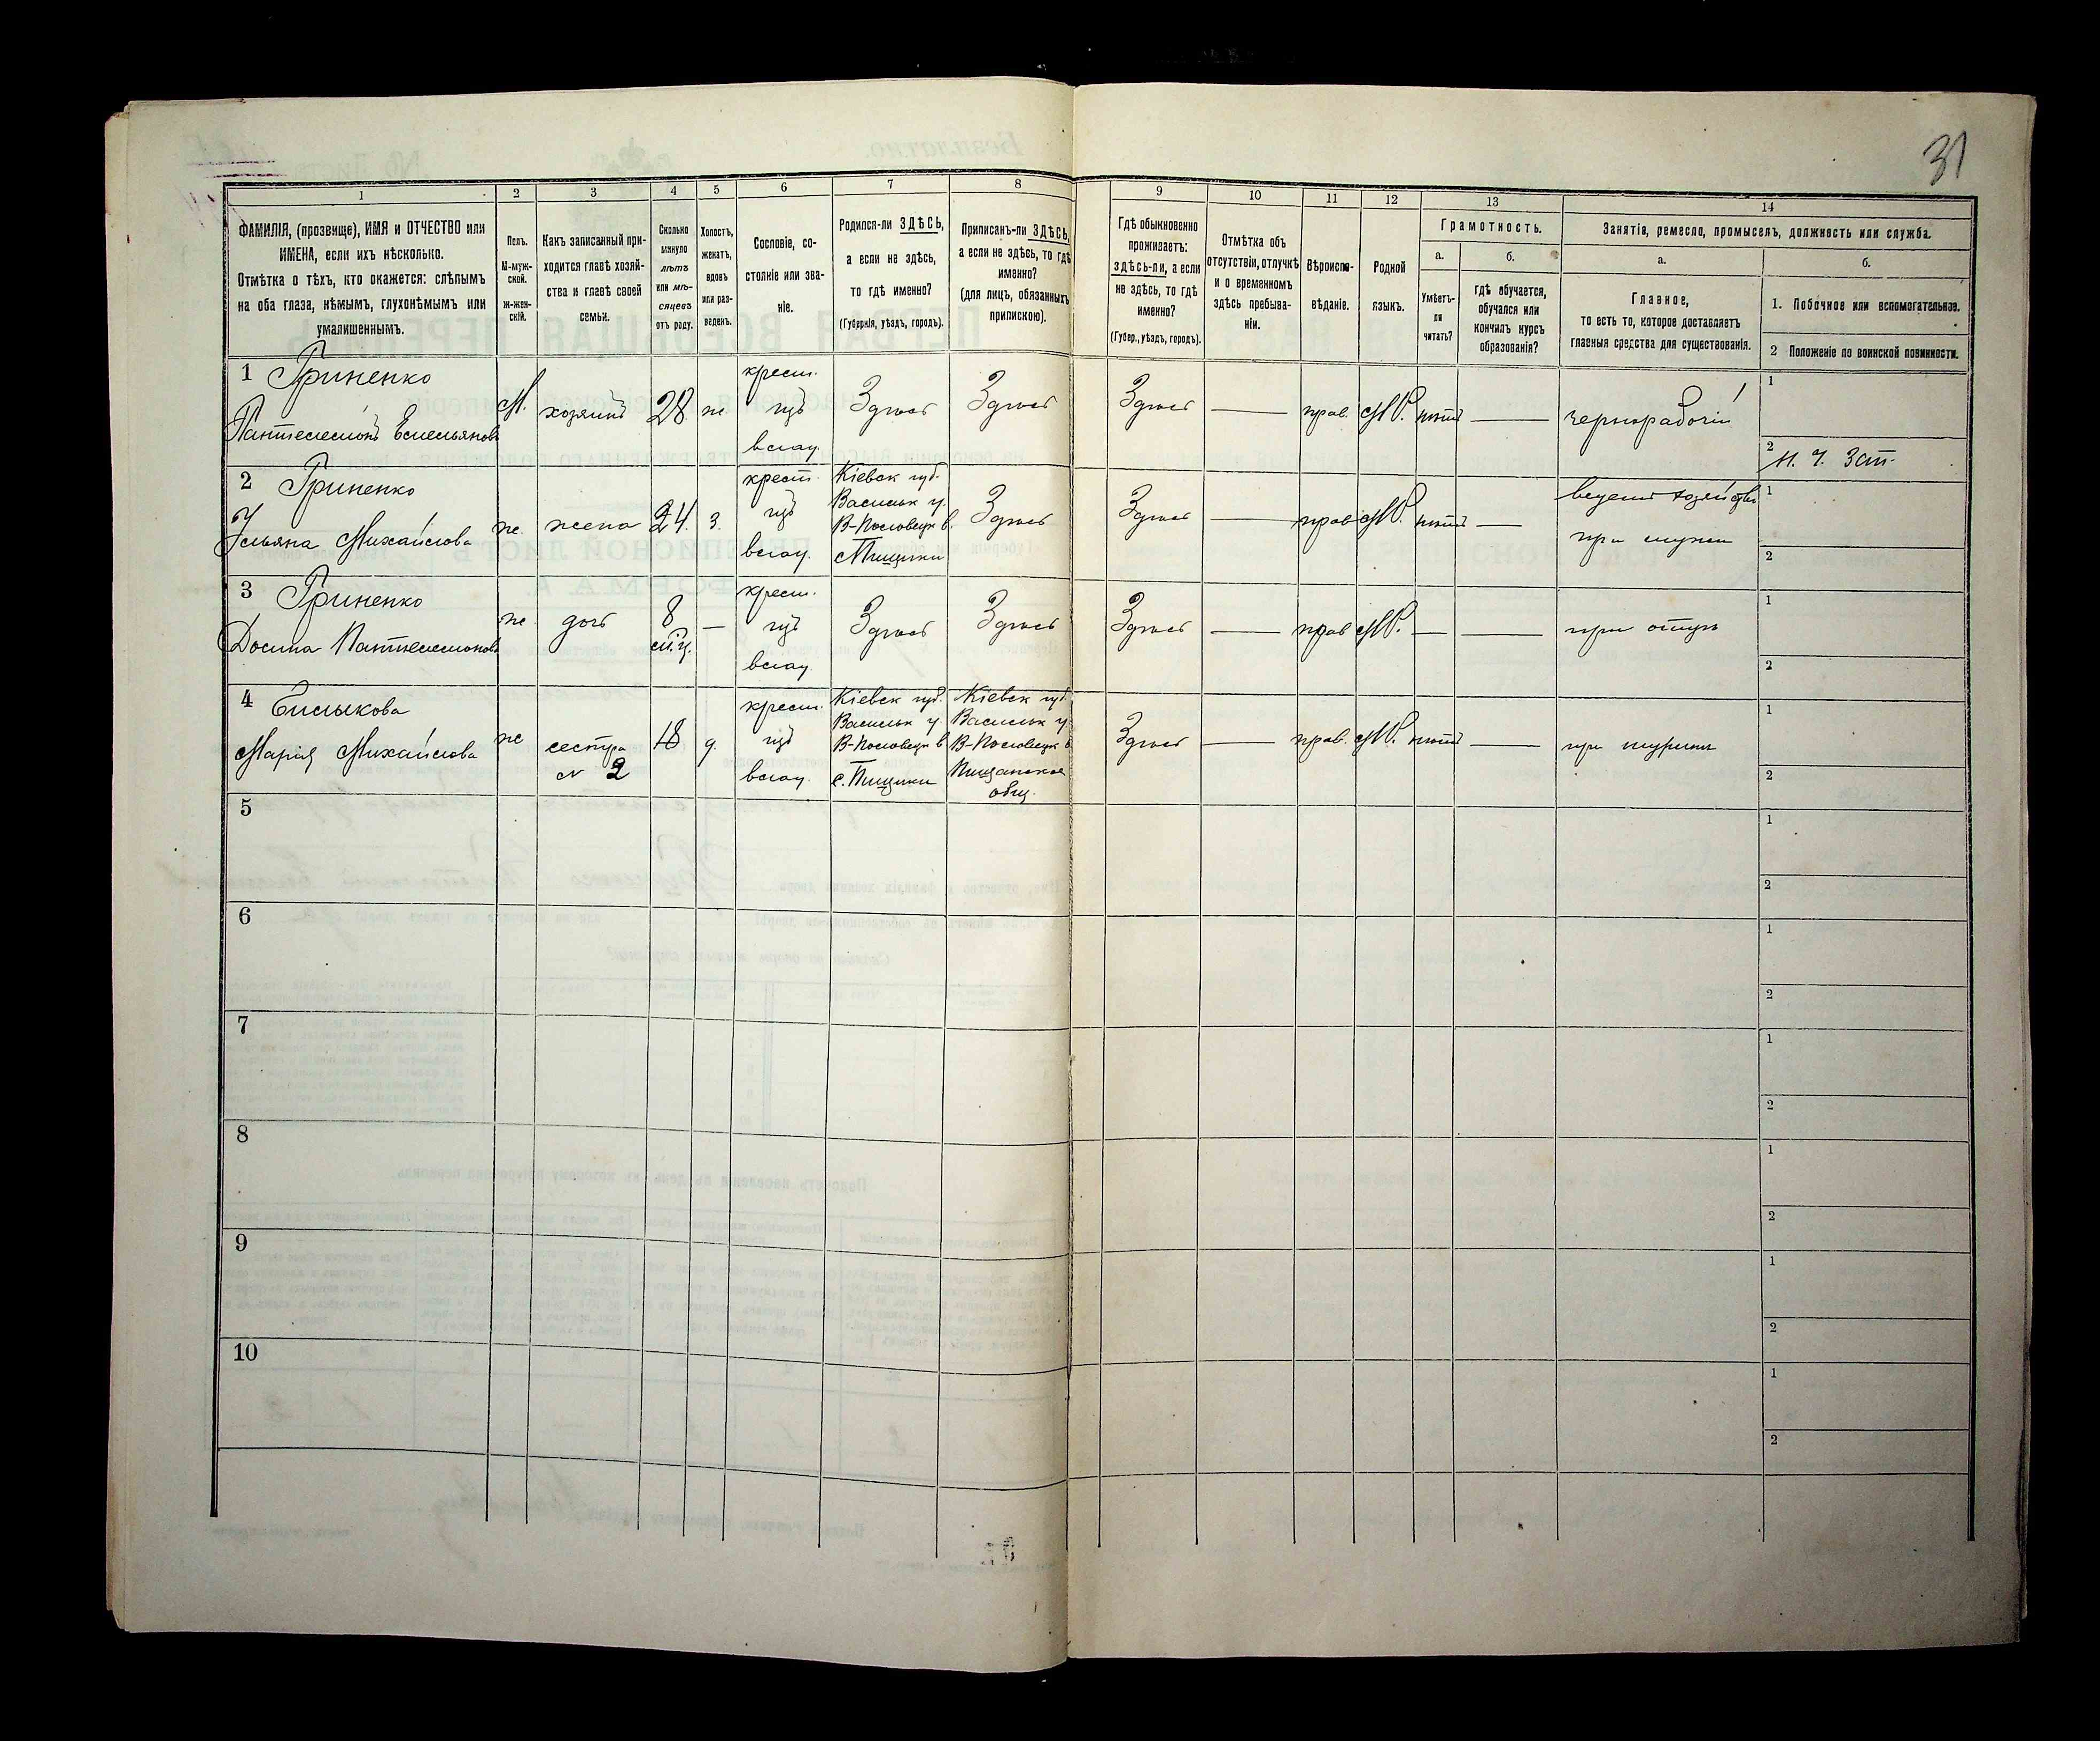 31
1
2
3
4
5
6
7
8
9
10
11
12
13
14
ФАМИЛІЯ, (прозвище), ИМЯ и ОТЧЕСТВО или
ИМЕНА, если ихъ нѣсколько.
Отмѣтка о тѣхъ, кто окажется: слѣпымъ
на оба глаза, нѣмымъ, глухонѣмымъ или
умалишеннымъ.
Полъ.
М-муж-
ской.
ж-жен-
скій.
Какъ записанный при-
ходится главѣ хозяй-
ства и главѣ своей
семьи.
Сколько
минуло
лѣтъ
или мѣ-
сяцевъ
отъ роду.
Холостъ,
женатъ,
вдовъ
или раз-
веденъ.
Сословіе, со-
стояніе или зва-
ніе.
Родился-ли ЗДѢСЬ,
а если не здѣсь,
то гдѣ именно?
(Губернія, уѣздъ, городъ).
Приписанъ-ли ЗДѢСЬ,
а если не здѣсь, то гдѣ
именно?
(для лицъ, обязанныхъ
припискою).
Гдѣ обыкновенно
проживаетъ:
здѣсь-ли, а если
не здѣсь, то гдѣ
именно?
(Губер., уѣздъ, городъ).
Отмѣтка объ
отсутствіи, отлучкѣ
и о временномъ
здѣсь пребыва-
ніи.
Вѣроиспо-
вѣданіе.
Родной
языкъ.
Грамотность.
а.
б.
Умѣетъ-
ли
читать?
гдѣ обучается,
обучался или
кончилъ курсъ
образованія?
Занятія, ремесло, промыселъ, должность или служба.
а.
б.
Главное,
то есть то, которое доставляетъ
главныя средства для существованія.
1. Побочное или вспомогательное.
2 Положеніе по воинской повинности.
1 Гриненко
Пантелеимонъ Емельяновъ
М.
хозяинъ
28
ж
крест.
изъ
влад.
Здѣсь
Здѣсь
Здѣсь
—
прав.
М.Р.
нѣтъ
—
чернорабочій
1
2
2 Гриненко
Ульяна Михайлова
ж.
жена
24.
З.
крест.
изъ
влад.
Кіевск губ.
Васильк у.
с. Пищики
Здѣсь
Здѣсь
—
прав
М.Р.
нѣтъ
—
веденіе хозяйства
при мужѣ
1
2
3 Гриненко
Пантелеимонова
ж
дочь
8
м-ц.
—
крест.
изъ
влад.
Здѣсь
Здѣсь
Здѣсь
—
прав
М.Р.
—
—
при отцѣ
1
2
4 Билыкова
Марія Михайлова
ж
сестра
№ 2
18
д.
крест.
изъ
влад.
Кіевск губ.
Васильк у.
с. Пищики
Кіевск губ.
Васильк у.
общ.
Здѣсь
—
прав.
М.Р.
нѣтъ
—
при шуринѣ
1
2
5
1
2
6
1
2
7
1
2
8
1
2
9
1
2
10
1
2